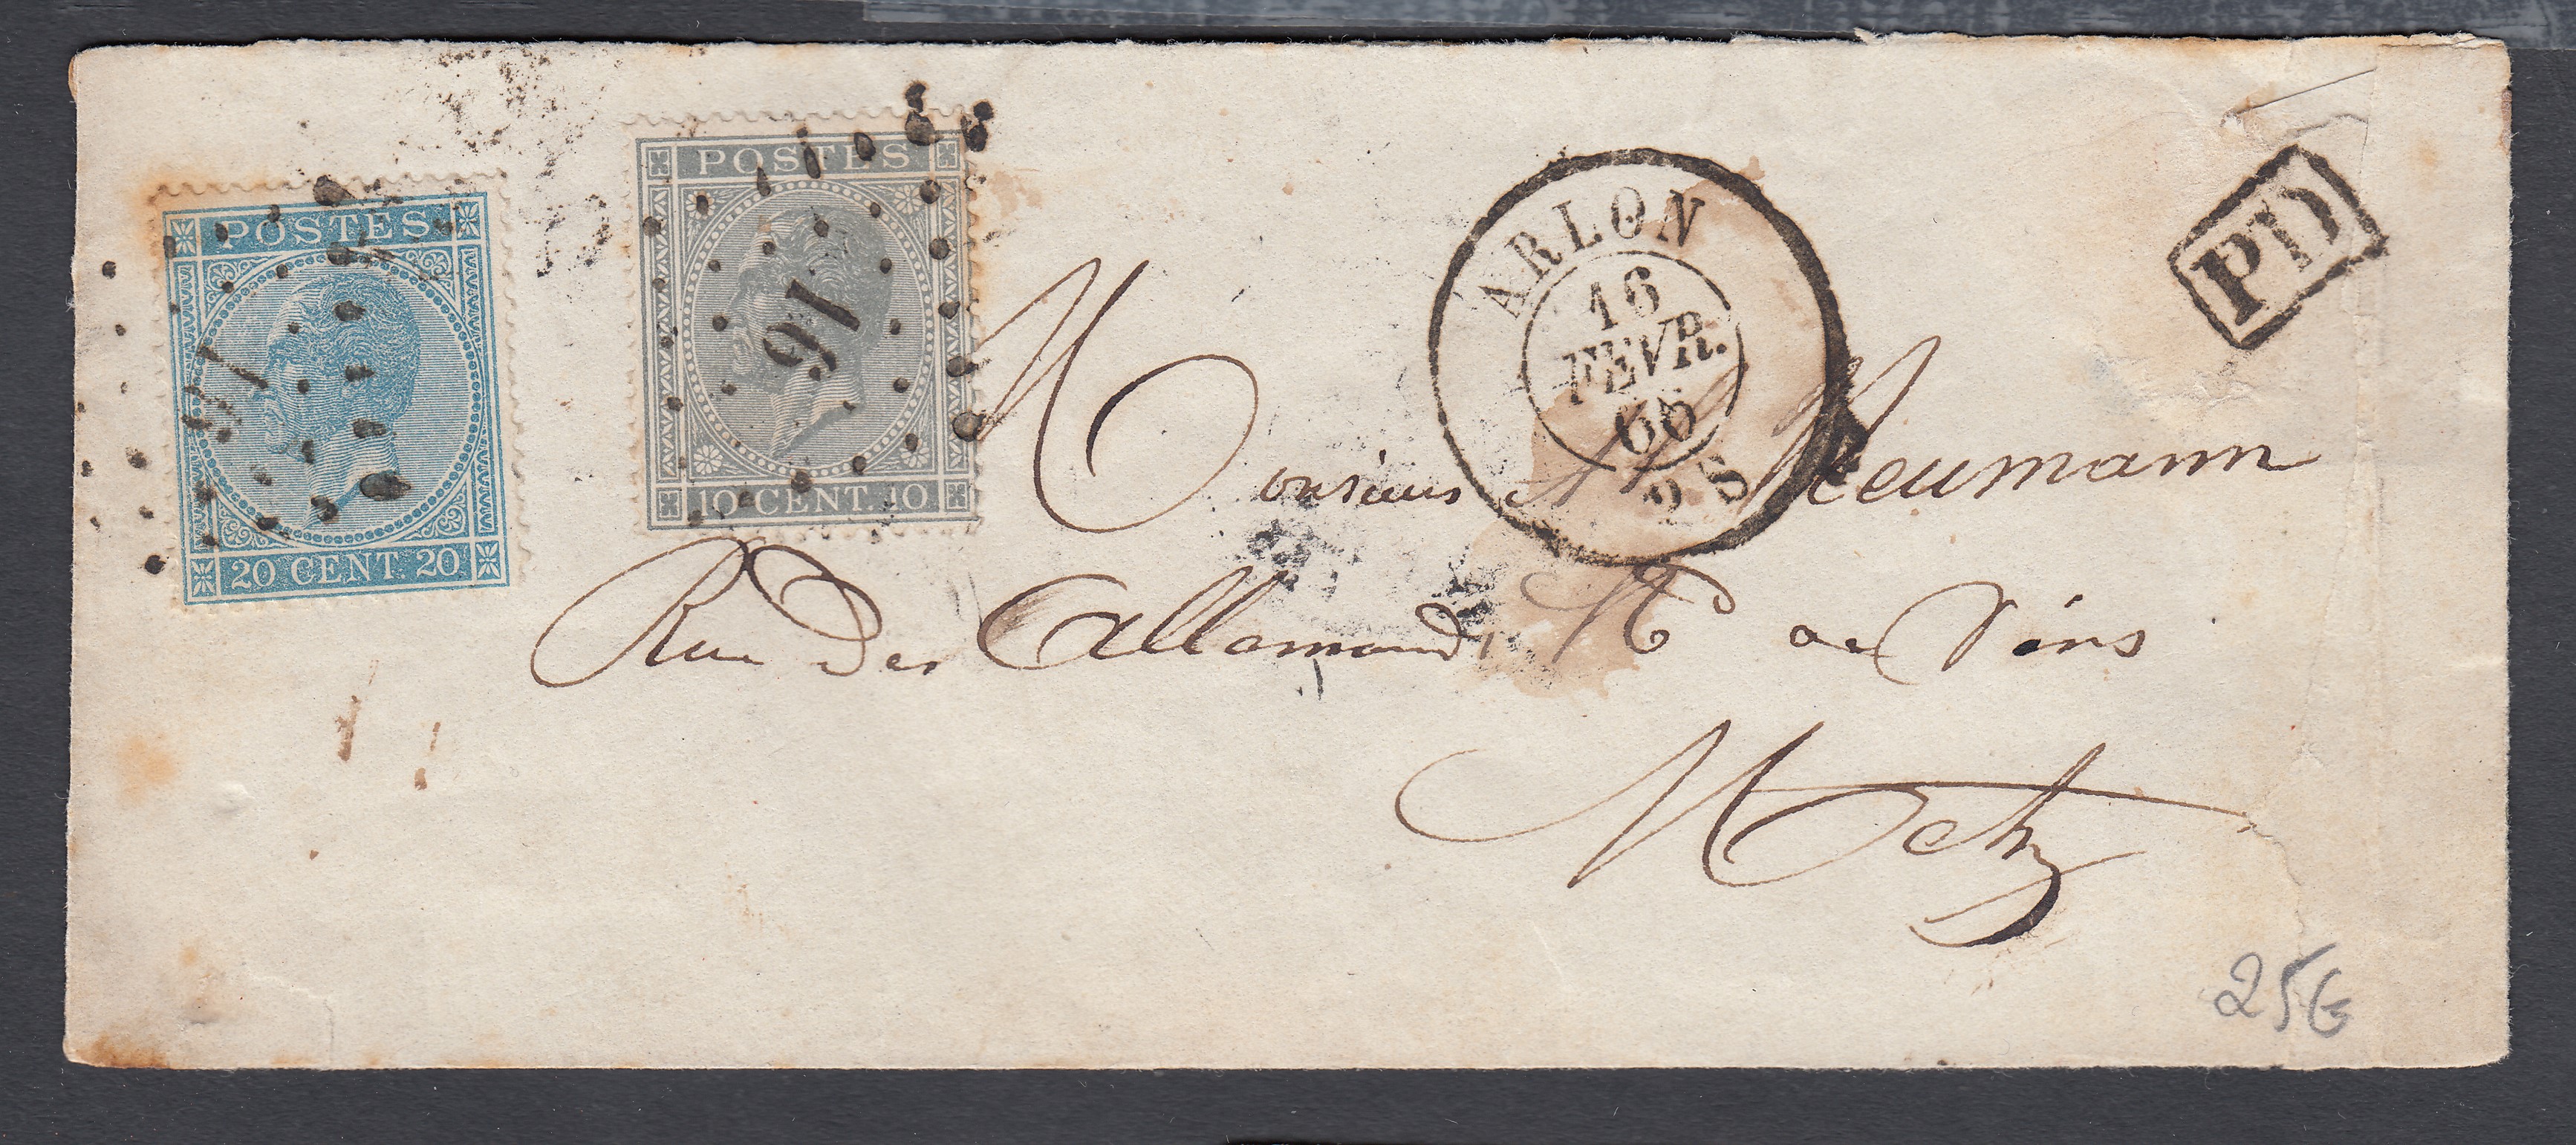 POSTES
20 CENT. 20
POSTES
16
10 CENT. 10
ARLON
16
FEVR.
66
PD
Monsieur Neumann
Rue des Allemands Md de Vins
Metz
25€